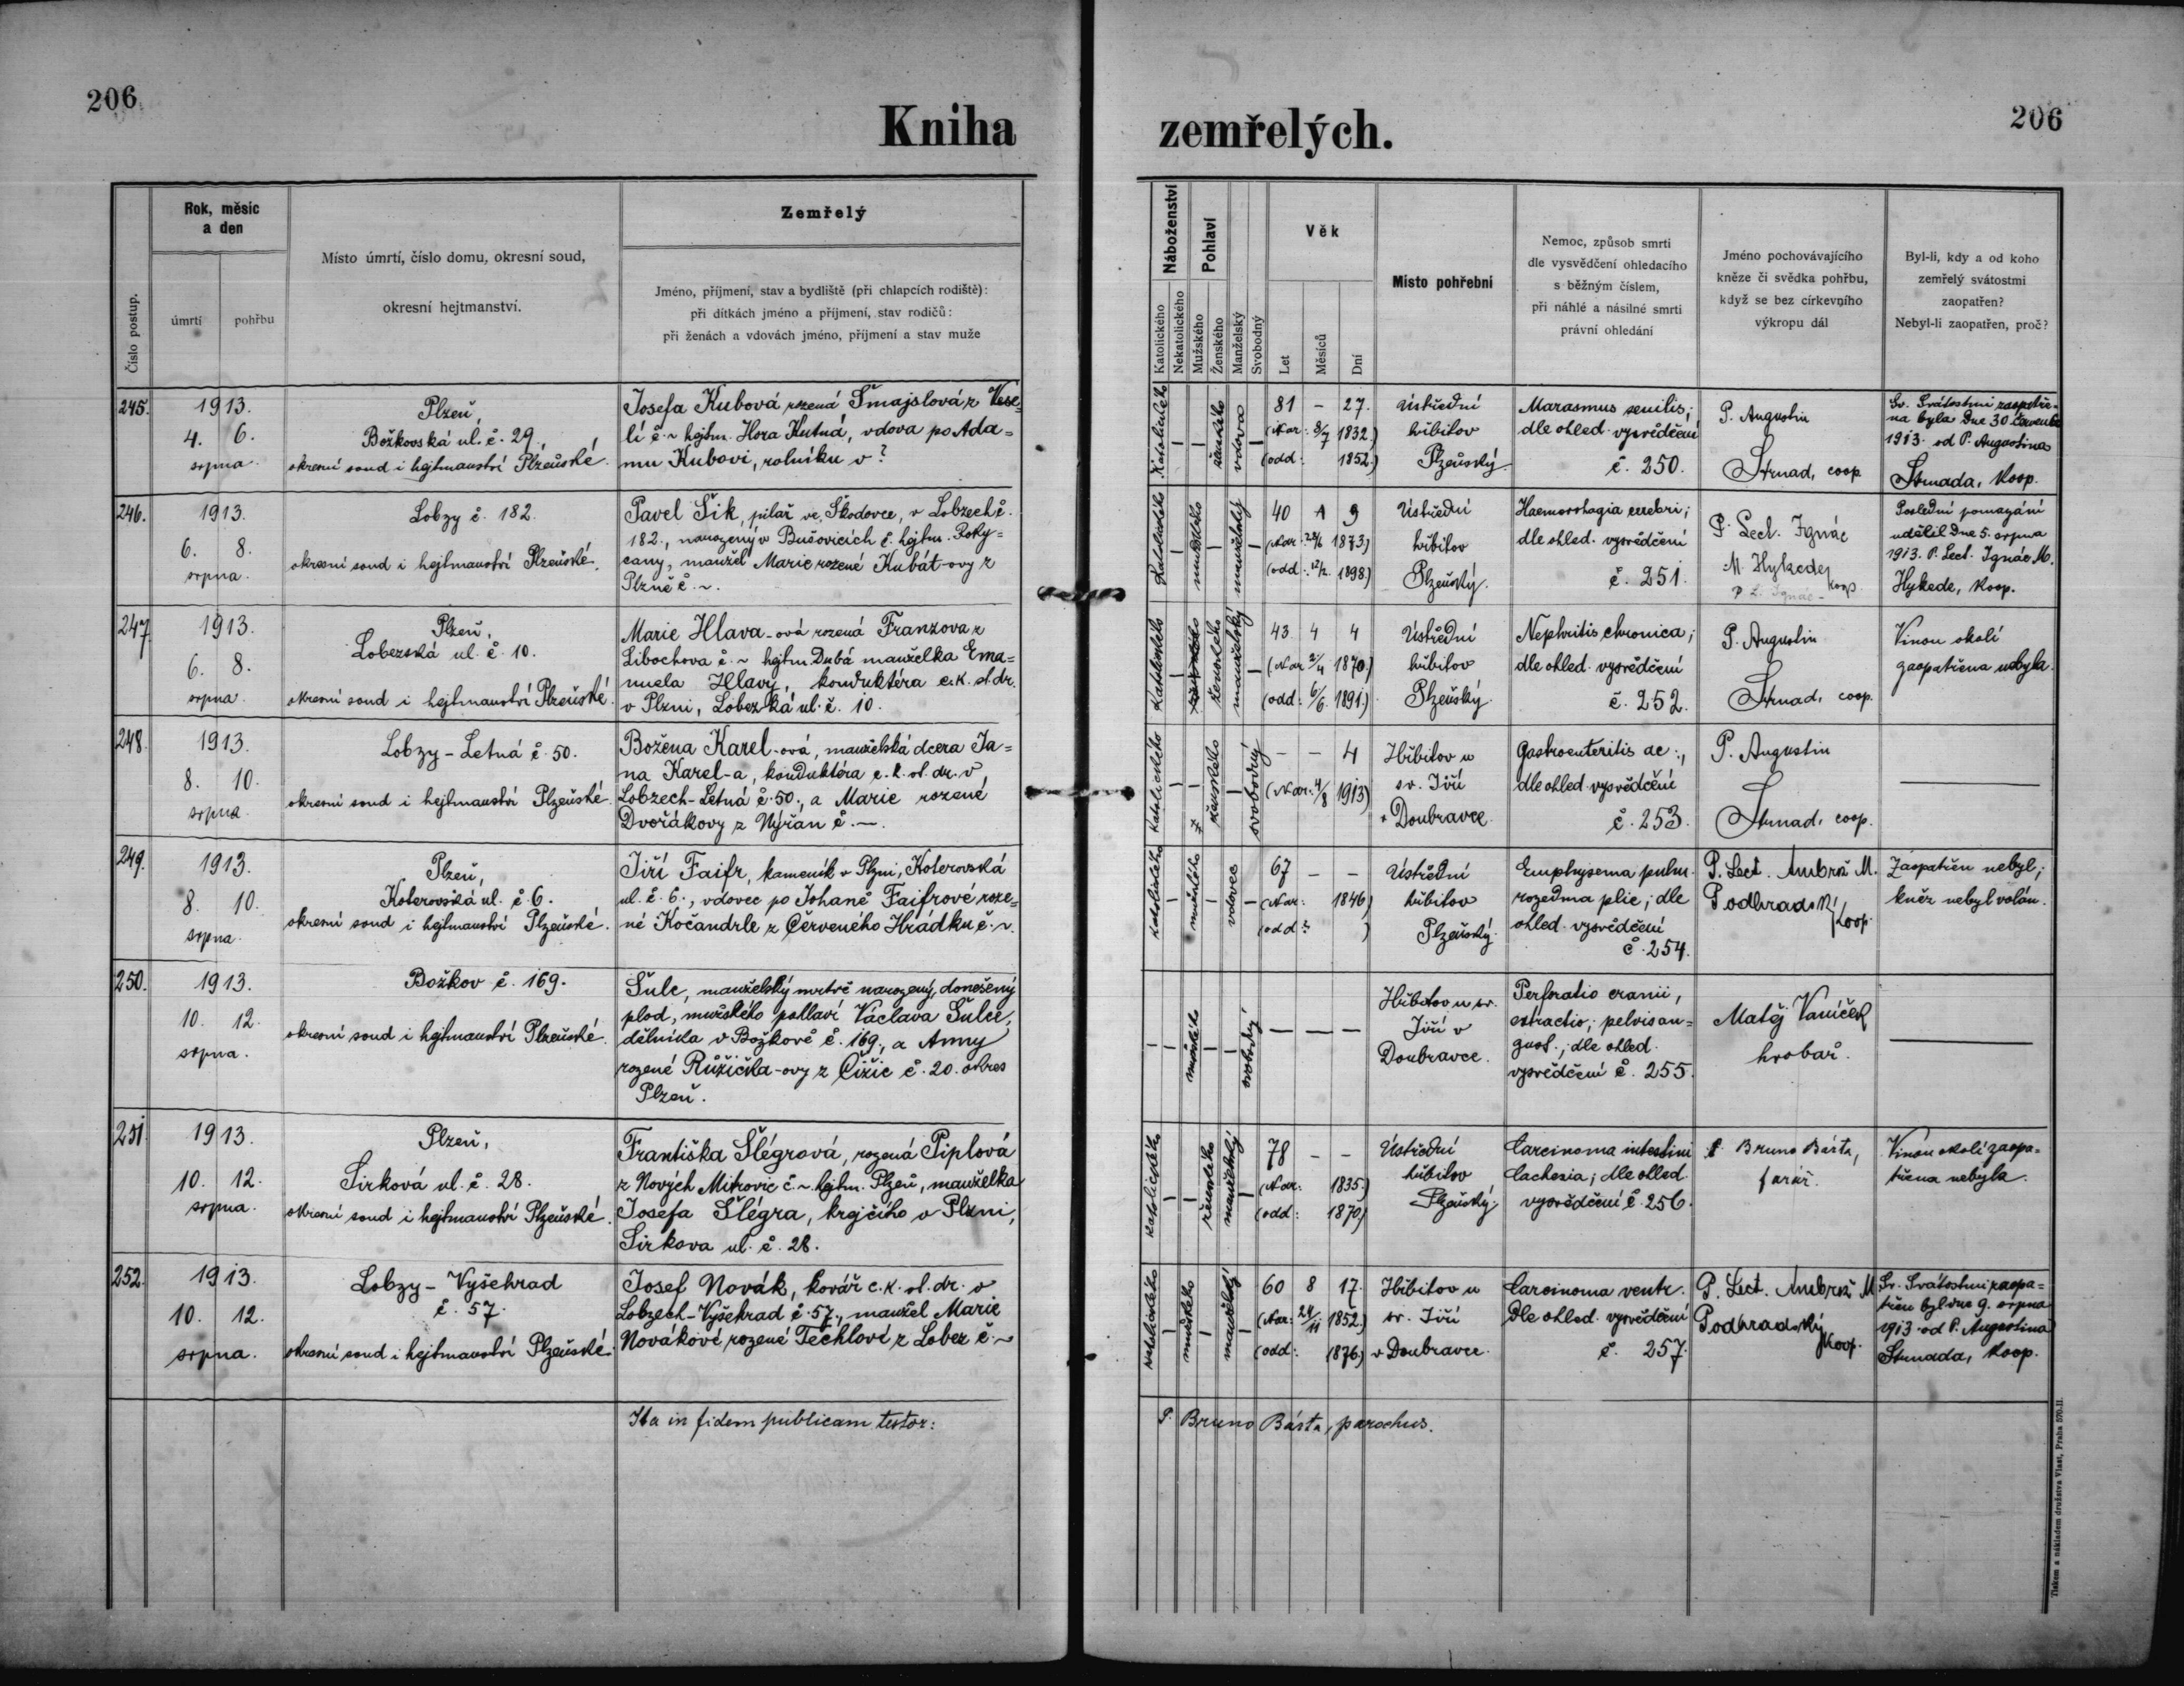 206
Kniha zemřelých.
206
Číslo postup.
Rok, měsíc
a den
úmrtí
pohřbu
Místo úmrtí, číslo domu, okresní soud,
okresní hejtmanství.
Zemřelý
Jméno, příjmení, stav a bydliště (při chlapcích rodiště):
při dítkách jméno a příjmení, stav rodičů:
při ženách a vdovách jméno, příjmení a stav muže
Náboženství
Katolického
Nekatolického
Pohlaví
Mužského
Ženského
Manželský
Svobodný
Věk
Let
Měsíců
Dní
Místo pohřební
Nemoc, způsob smrti
dle vysvědčení ohledacího
s běžným číslem,
při náhlé a násilné smrti
právní ohledání
Jméno pochovávajícího
kněze či svědka pohřbu,
když se bez církevního
výkropu dál
Byl-li, kdy a od koho
zemřelý svátostmi
zaopatřen?
Nebyl-li zaopatřen, proč?
245.
1913.
4. 6.
srpna.
Plzeň,
Božkovská ul. č. 29,
okresní soud i hejtmanství Plzeňské.
Josefa Kubová rozená Šmajslová z Vese-
lí č ~ hejtm. Hora Kutná, vdova po Ada-
mu Kubovi, rolníku v ?
Katolického
ženského
vdova
81 – 27.
(Nar: 8/7 1832.)
(odd: 1852.)
Ústřední
hřbitov
Plzeňský.
Marasmus senilis;
dle ohled. vysvědčení
č. 250.
P. Augustin
Strnad, coop.
Sv. Svátostmi zaopatře-
na byla dne 30. července
1913. od P. Augustina
Strnada, koop.
246.
1913.
6. 8.
srpna.
Lobzy č. 182.
okresní soud i hejtmanství Plzeňské.
Pavel Šik, pilař ve Škodovce, v Lobzech č.
182., narozený v Bušovicích č. hejtm. Roky-
cany, manžel Marie rozené Kubát-ovy z
Plzně č. ~.
Katolického
mužského
manželský
40 1 9
(Nar: 28/6 1873)
(odd: 12/2. 1898)
Ústřední
hřbitov
Plzeňský.
Haemorrhagia cerebri;
dle ohled. vysvědčení
č. 251.
P. Lect. Ignác
M. Hykede,
koop.
P. L. Ignác -
Poslední pomazání
udělil dne 5. srpna
1913. P. Lect. Ignác M.
Hykede, koop.
247.
1913.
6. 8.
srpna.
Plzeň,
Lobezská ul. č. 10.
okresní soud i hejtmanství Plzeňské.
Marie Hlava-ová rozená Franzova z
Libochova č. ~ hejtm. Dubá manželka Ema-
nuela Hlavy, konduktéra c. k. st. dr.
v Plzni, Lobezská ul. č. 10.
Katolického
ženského
manželský
43 4 4
(Nar 2/4 1870)
(odd: 6/6. 1891.)
Ústřední
hřbitov
Plzeňský.
Nephritis chronica;
dle ohled. vysvědčení
č. 252.
P. Augustin
Strnad, coop.
Vinou okolí
zaopatřena nebyla.
248.
1913.
8. 10.
srpna.
Lobzy - Letná č. 50.
okresní soud i hejtmanství Plzeňské.
Božena Karel-ová, manželská dcera Ja-
na Karel-a, konduktéra c. k. st. dr. v
Lobzech-Letná č. 50., a Marie rozené
Dvořákovy z Nýřan č. —.
Katolického
ženského
svobodný
– – 4
(Nar: 4/8 1913)
Hřbitov u
sv. Jiří
v Doubravce.
Gastroenteritis ac:,
dle ohled. vysvědčení
č. 253.
P. Augustin
Strnad, coop.
249.
1913.
8. 10.
srpna.
Plzeň,
Koterovská ul. č. 6.
okresní soud i hejtmanství Plzeňské.
Jiří Faifr, kameník v Plzni, Koterovská
ul. č. 6., vdovec po Johaně Faifrové roze-
né Kočandrle z Červeného Hrádku č. ~.
Katolického
mužského
vdovec
67 – –
(Nar: 1846)
(odd: )
Ústřední
hřbitov
Plzeňský.
Emphysema pulm.
rozedma plic; dle
ohled. vysvědčení
č. 254.
P. Lect. Ambrož M.
Podhradský
koop.
Zaopatřen nebyl;
kněz nebyl volán.
250.
1913.
10. 12.
srpna.
Božkov č. 169.
okresní soud i hejtmanství Plzeňské.
Šulc, manželský mrtvě narozený, donešený
plod, mužského pohlaví Václava Šulce,
dělníka v Božkově č. 169., a Anny
rozené Růžička-ovy z Čižic č. 20. okres
Plzeň.
mužského
svobodný
– – –
Hřbitov u sv.
Jiří v
Doubravce.
Perforatio cranii,
extractio; pelvis an-
gust., dle ohled.
vysvědčení č. 255.
Matěj Vaníček
hrobař.
251.
1913.
10. 12.
srpna.
Plzeň,
Sirková ul. č. 28.
okresní soud i hejtmanství Plzeňské.
Františka Šlégrová, rozená Piplová
z Nových Mitrovic č. ~ hejtm. Plzeň, manželka
Josefa Šlégra, krejčího v Plzni,
Sirkova ul. č. 28.
Katolického
ženského
manželský
78 – –
(Nar: 1835.)
(odd: 1870)
Ústřední
hřbitov
Plzeňský.
Carcinoma intestini
Cachexia; dle ohled.
vysvědčení č. 256.
P. Bruno Bárta,
farář.
Vinou okolí zaopa-
třena nebyla.
252.
1913.
10. 12.
srpna.
Lobzy - Vyšehrad
č. 57.
okresní soud i hejtmanství Plzeňské.
Josef Novák, kovář c. k. st. dr. v
Lobzech-Vyšehrad č. 57., manžel Marie
Novákové, rozené Techlové z Lobez č. ~
Katolického
mužského
manželský
60 8 17.
(Nar: 24/11 1852.)
(odd: 1876)
Hřbitov u
sv. Jiří
v Doubravce.
Carcinoma ventr.
Dle ohled. vysvědčení
č. 257.
P. Lect. Ambrož M.
Podhradský
koop.
Sv. Svátostmi zaopa-
třen byl dne 9. srpna
1913 od P. Augustina
Strnada, koop.
Ita in fidem publicam testor:
P. Bruno Bárta, parochus.
Tiskem a nákladem družstva Vlast, Praha 570-II.